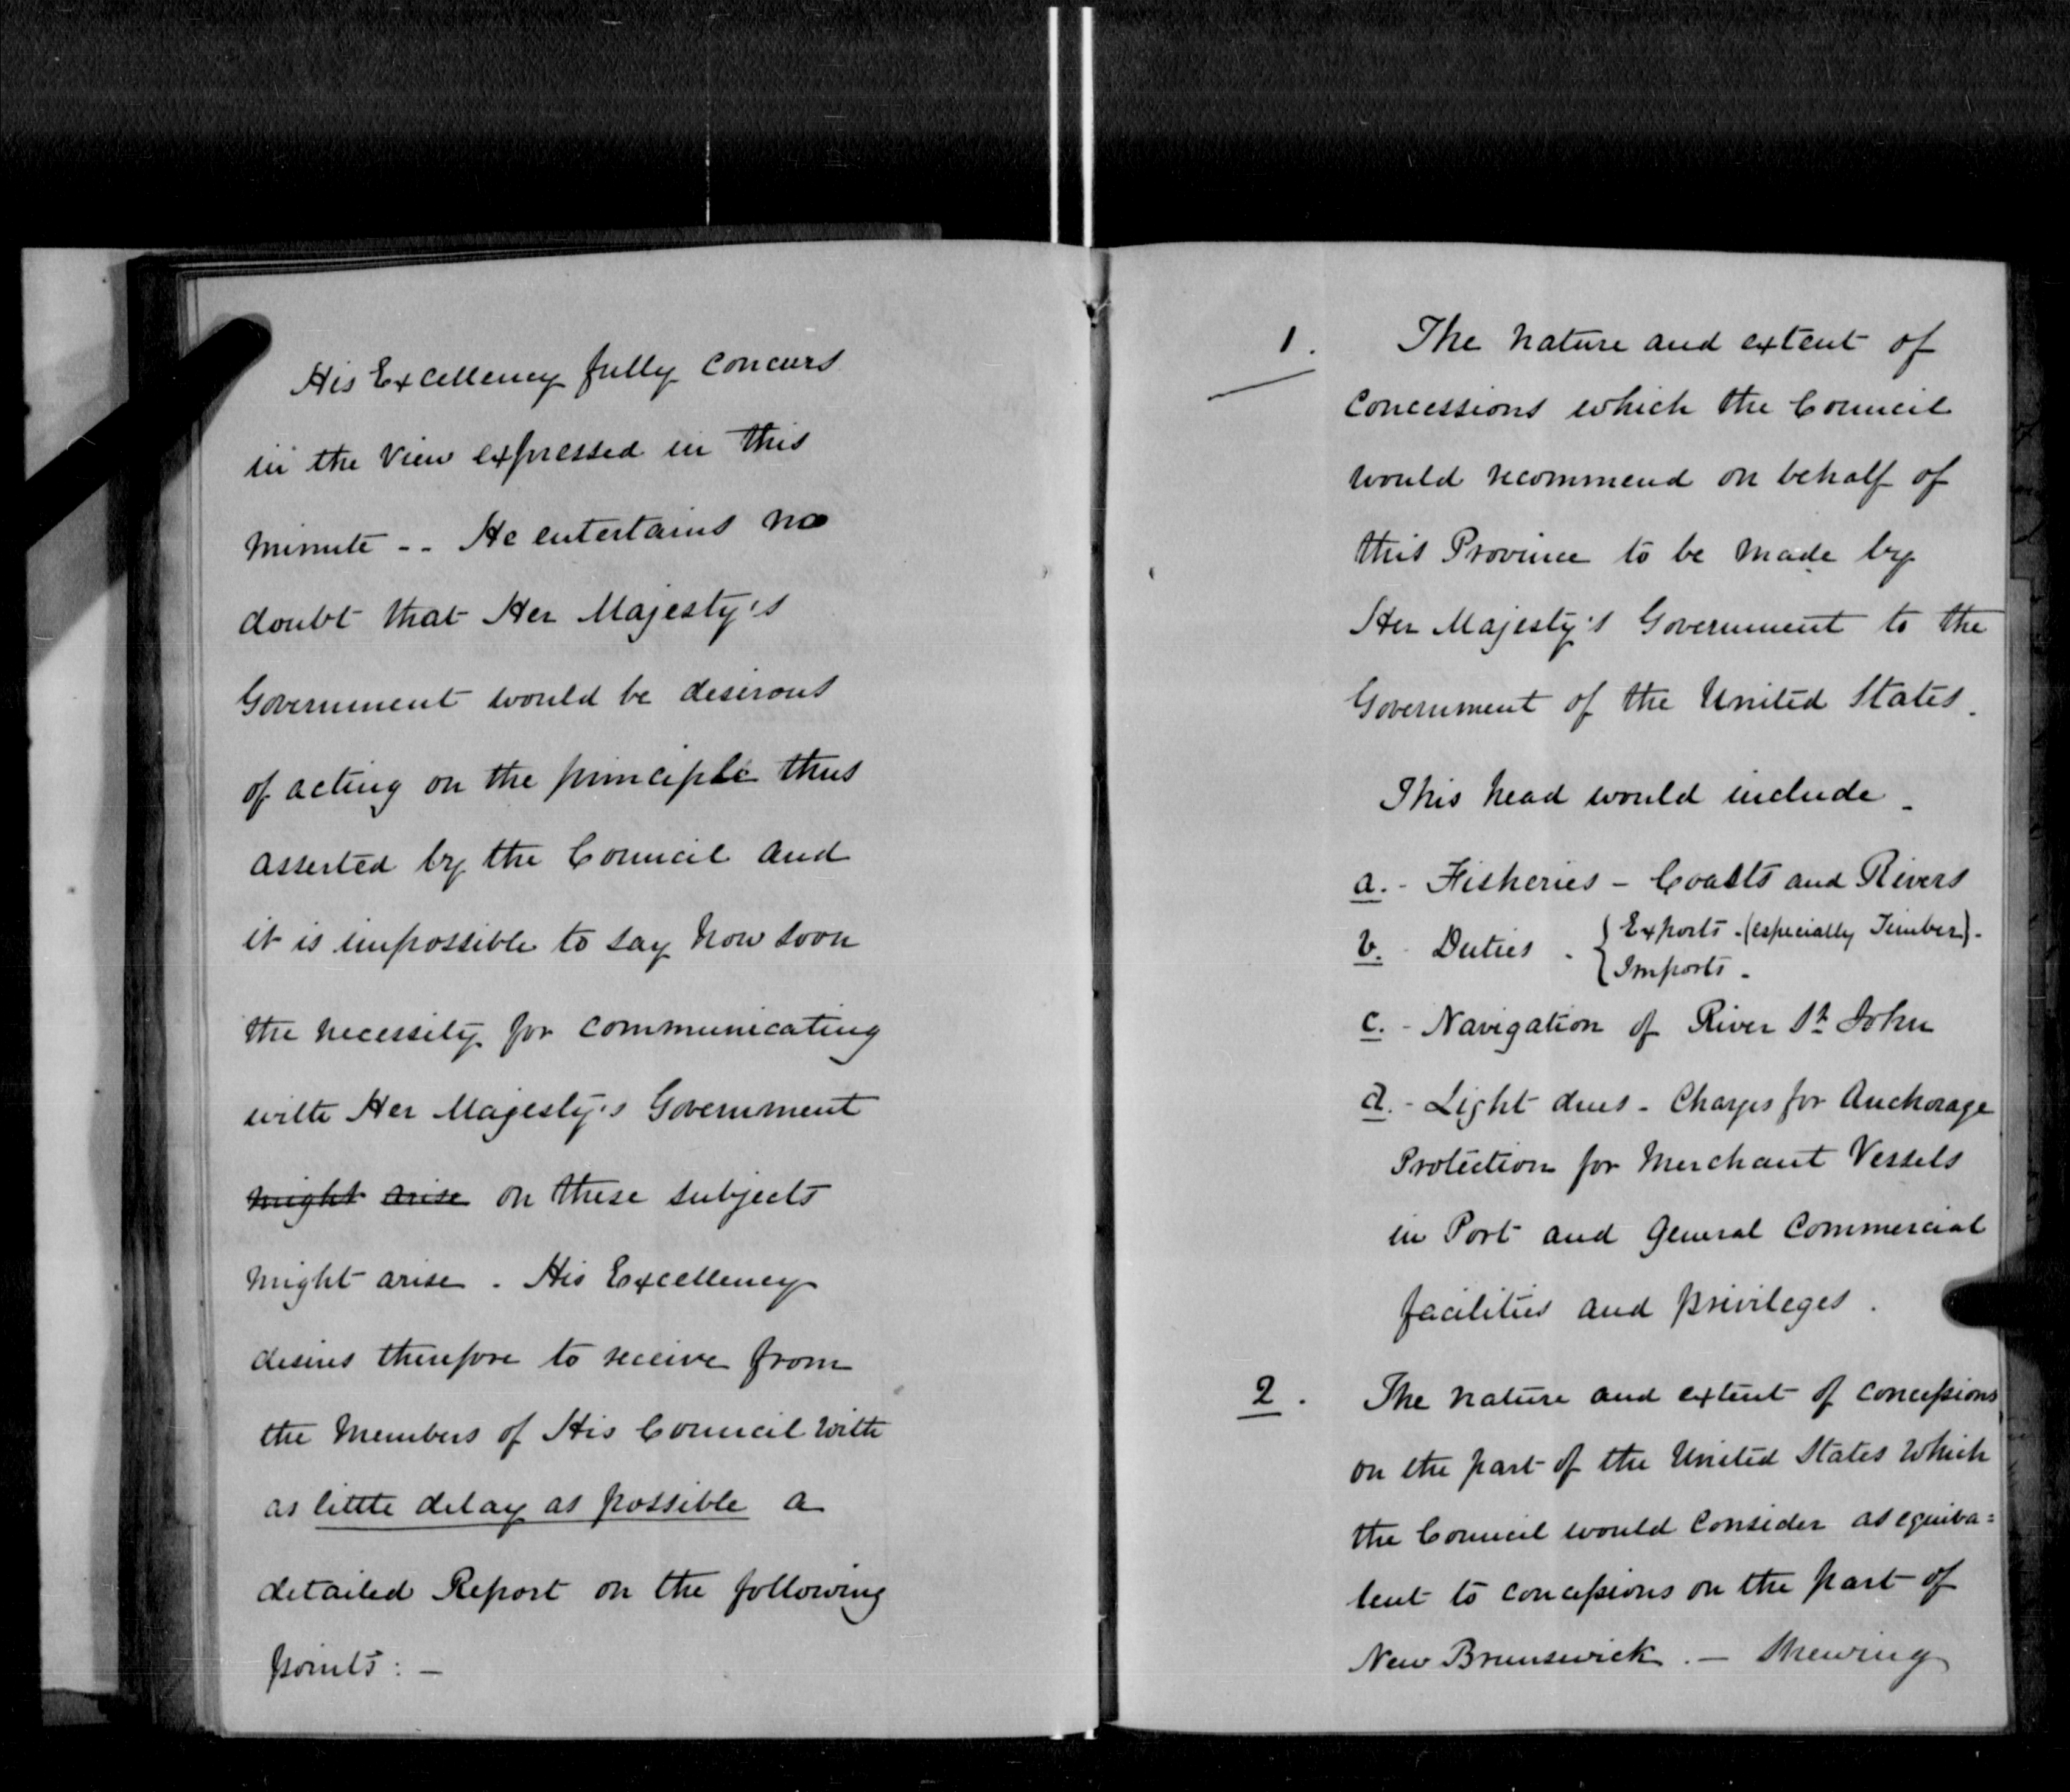 His Excellency fully concurs
in the view expressed in this
minute -- He entertains no
doubt that Her Majesty's
Government would be desirous
of acting on the principle thus
asserted by the Council and
it is impossible to say how soon
the necessity for communicating
with Her Majesty's Government
might arise on these subjects
might arise. His Excellency
desires therefore to receive from
the Members of His Council with
as little delay as possible a
detailed Report on the following
points: —
1. The nature and extent of
concessions which the Council
would recommend on behalf of
this Province to be made by
Her Majesty's Government to the
Government of the United States.
This head would include -
a. - Fisheries - Coasts and Rivers
b. - Duties - { Exports - (especially Timber) -
{ Imports -
c. - Navigation of River St John
d. - Light dues - Charges for Anchorage
Protection for Merchant Vessels
in Port and General Commercial
facilities and privileges.
2. The nature and extent of concessions
on the part of the United States which
the Council would consider as equiva=
lent to concessions on the part of
New Brunswick. — Shewing